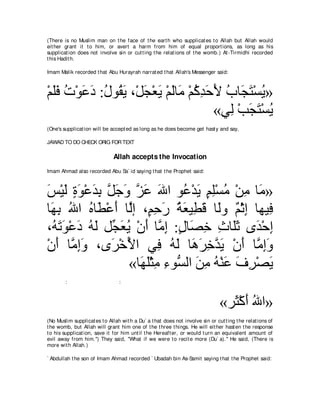 (There is no Muslim man on the face of the earth who supplicates to Allah but Allah would
either grant it to him, or avert a harm from him of equal proportions, as long as his
supplication does not involve sin or cutting the relations of the womb.) At-Tirmidhi recorded
this Hadith.
Imam Malik recorded that Abu Hurayrah narrated that Allah's Messenger said:
«يُسْتَجَابُ لِأَحَدِكُمْ مَالَمْ يَعْجَلْ، يَقُولُ: دَعَوْتُ فَلَمْ
يُسْتَجَبْ لِي»
(One's supplication will be accepted as long as he does become get hasty and say,
JAWAD TO DO CHECK ORIG FOR TEXT
Allah accepts the Invocation
Imam Ahmad also recorded Abu Sa`id saying that the Prophet said:
«مَا مِنْ مُسْلِمٍ يَدْعُو اللهَ عَزَّ وَجَلَّ بِدَعْوَةٍ لَيْسَ
فِيهَا إِثْمٌ وَلَا قَطِيعَةُ رَحِمٍ، إِلَّا أَعْطَاهُ اللهُ بِهَا
إِحْدَى ثَلَاثِ خِصَالٍ: إِمَّا أَنْ يُعَجِّلَ لَهُ دَعْوَتَهُ،
وَإِمَّا أَنْ يَدَّخِرَهَا لَهُ فِي الْأُخْرَى، وَإِمَّا أَنْ
يَصْرِفَ عَنْهُ مِنَ السُّوءِ مِثْلَهَا»
: :
«اللهُ أَكْثَرُ»
(No Muslim supplicates to Allah with a Du`a that does not involve sin or cutting the relations of
the womb, but Allah will grant him one of the three things. He will either hasten the response
to his supplication, save it for him until the Hereafter, or would turn an equivalent amount of
evil away from him.") They said, "What if we were to recite more (Du`a)." He said, (There is
more with Allah.)
`Abdullah the son of Imam Ahmad recorded `Ubadah bin As-Samit saying that the Prophet said: